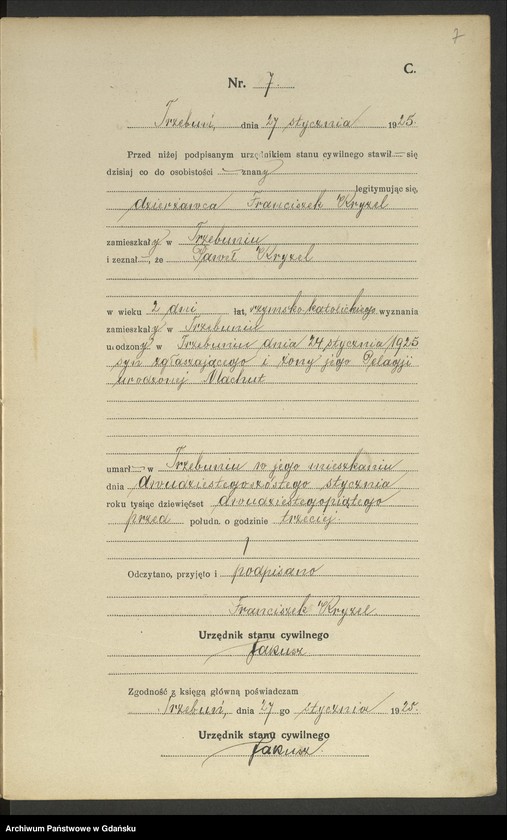 7
C.
Nr. 7.
Trzebuń, dnia 27 stycznia 1925.
Przed niżej podpisanym urzędnikiem stanu cywilnego stawił się
dzisiaj co do osobistości znany
legitymując się,
dzierżawca Franciszek Kryzel
zamieszkały w Trzebuniu
i zeznał, że Paweł Kryzel
w wieku 2 dni lat, rzymsko katolickiego wyznania
zamieszkały w Trzebuniu
urodzony w Trzebuniu dnia 24 stycznia 1925
syn zgłaszającego i żony jego Pelagji
urodzonej Machut
umarł w Trzebuniu w jego mieszkaniu
dnia dwudziestegoszóstego stycznia
roku tysiąc dziewięćset dwudziestegopiątego
przed połudn. o godzinie trzeciej.
Odczytano, przyjęto i podpisano
Franciszek Kryzel
Urzędnik stanu cywilnego
Jakusz
Zgodność z księgą główną poświadczam
Trzebuń, dnia 27 go stycznia 1925.
Urzędnik stanu cywilnego
Jakusz.
Archiwum Państwowe w Gdańsku